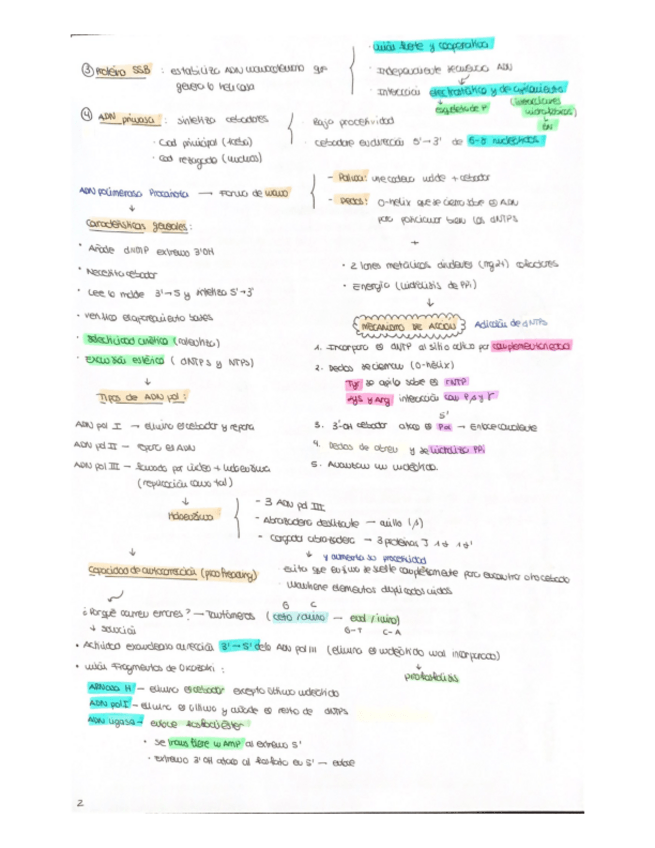 ③ Proteína SSB : estabiliza ADN monocatenario que
genera la helicasa
· Unión fuerte y cooperativa
· Independiente secuencia ADN
· Interacción electrostática y de apilamiento
esqueleto P (interacciones hidrofóbicas)
BN
④ ADN primasa : sintetiza cebadores
· Cad principal (1 sola)
· Cad retrasada (muchos)
Baja procesividad
cebadores en dirección 5'→3' de nucleótidos
ADN polimerasa Procariota → Forma de mano
- Palma: une cadena molde + cebador
- Dedos: O-hélix que se cierra sobre el ADN
para posicionar bien los dNTPs
↓
Características generales:
+
· Añade dNTP extremo 3'OH
· Necesita cebador
· Lee la molde 3'→5' y sintetiza 5'→3'
· verifica el apareamiento bases
· Selectividad cinética (correcto)
· Exclusión estérica ( dNTPs y NTPs)
· 2 Iones metálicos divalentes (Mg2+) cofactores
· Energía (hidrólisis de PPi)
↓
MECANISMO DE ACCIÓN Adición de dNTPs
1. Incorpora el dNTP al sitio activo por complementariedad
2. Dedos se cierran (O-hélix)
Tyr se apila sobre el dNTP
Lys y Arg interacción con
5'
3. 3'-OH cebador ataca el Pα → Enlace covalente
4. Dedos se abren y se hidroliza PPi
5. Avanzan un nucleótido.
↓
Tipos de ADN pol :
ADN pol I → elimina el cebador y repara
ADN pol II → repara el ADN
ADN pol III → formado por núcleo + holoenzima
(replicación como tal)
↓
Holoenzima
- 3 ADN pol III
- Abrazadera deslizante → anillo (β)
- Cargador abrazadera → 3 proteínas
↓ y aumenta su procesividad
evita que enzima se suelte completamente para encontrar otro cebado
· Mantiene elementos duplicados unidos
↓
Capacidad de autocorrección (proofreading)
¿Porqué ocurren errores? → Tautómeros ( ceto / amino → enol / imino)
G C
G-T C-A
↓ solución
· Actividad exonucleasa dirección 3'→5' de la ADN pol III (elimina el nucleótido mal incorporado)
↓
· Unión Fragmentos de Okazaki :
ARNasa H → elimina el cebador excepto último nucleótido
ADN pol I → elimina el último y añade el resto de dNTPs
ADN ligasa → enlace fosfodiéster
· Se transfiere un AMP al extremo 5'
· Extremo 3'OH ataca al fosfato en 5' → enlace
2